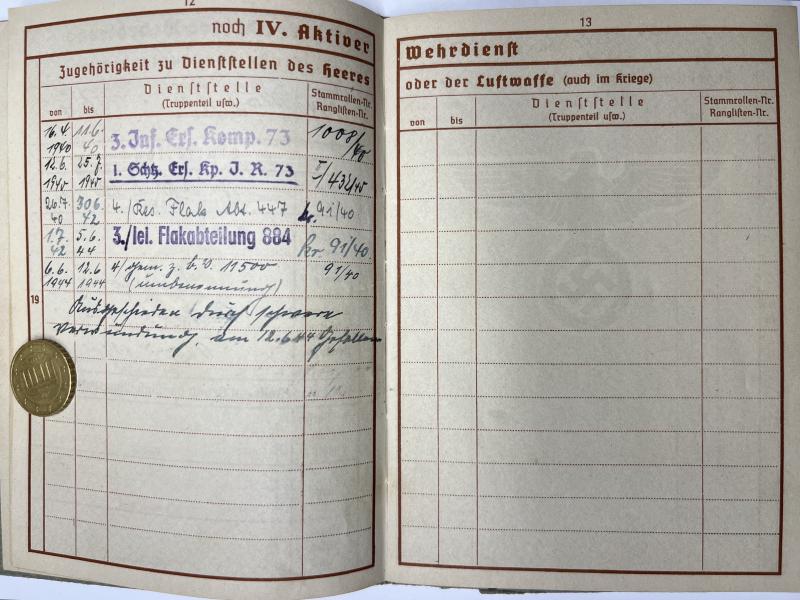 12
noch IV. Aktiver
Zugehörigkeit zu Dienststellen des Heeres
von
bis
Dienststelle
(Truppenteil usw.)
Stammrollen-Nr.
Ranglisten-Nr.
16.4. 1940 11.6. 40 3. Inf. Ers. Komp. 73 1008/40
12.6. 1940 25.7. 1940 1. Schtz. Ers. Kp. I. R. 73 432/40
26.7. 40 30.6. 42 4./Res. Flak Abt. 447 91/40
1.7. 42 5.6. 44 3./lei. Flakabteilung 884 Kr. 91/40
6.6. 1944 12.6 1944 4/ gem. z. b. V. 11500 91/40
(umbenennung)
19
Ausgeschieden durch schwere
Verwundung, am 12.6.44 Gefallen
13
Wehrdienst
oder der Luftwaffe (auch im Kriege)
von
bis
Dienststelle
(Truppenteil usw.)
Stammrollen-Nr.
Ranglisten-Nr.